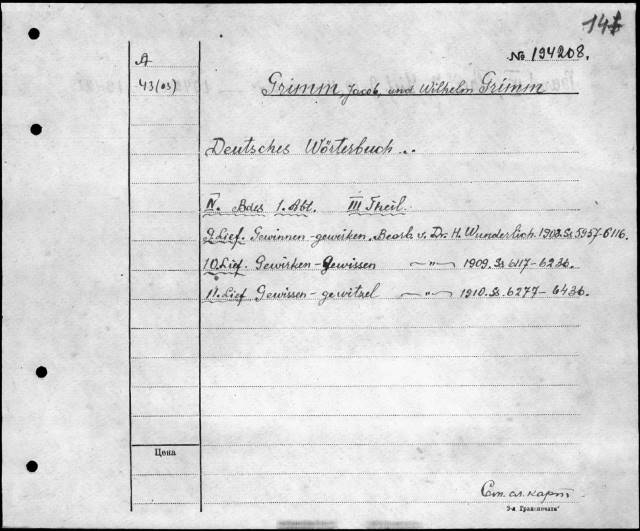 141
№ 194208.
A
43(03)
Grimm, Jacob, und Wilhelm Grimm
Deutsches Wörterbuch..
IV. Bdes 1. Abt. III Theil.
9. Lief. Gewinnen-gewirken. Bearb. v. Dr. H. Wunderlich. 1908. Ss 5957-6116.
10. Lief. Gewirken-Gewissen —„— 1909. Ss 6117-6236.
11. Lief Gewissen-gewitzel —„— 1910. Ss. 6277-6436.
Цена
См. сл. карт